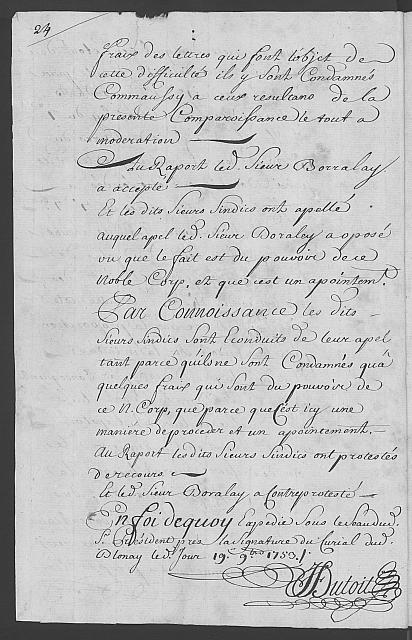 24
fraix des lettres qui font l'objet de
cette difficulté ils y sont Condamnés
Commaussy a ceux resultans de la
presente Comparoissance le tout a
moderation
Au Raport led. Sieur Borralay
a accepté
Et les dits Sieurs Sindics ont apellé
Auquel apel led. Sieur Boralay a oposé
vu que le fait est du pouvoir de ce
Noble Corp, et que c'est un apointemt.
Par Connoissance les dits
Sieurs Sindics sont Econduits de leur apel
tant parce qu'ils ne sont Condamnés qu'a
quelques fraix qui sont du pouvoir de
ce N. Corp, que parce que c'est icy une
maniére de proceder et un apointement.
Au Raport les dits Sieurs Sindics ont protestés
de recours
Et led. Sieur Boralay a Contreprotesté
En foi dequoy Expedié sous le sceau dud.
Sr. Président près la signature du Curial dud.
Blonay led. Jour 19e. 9bre 1750.
Dutoit